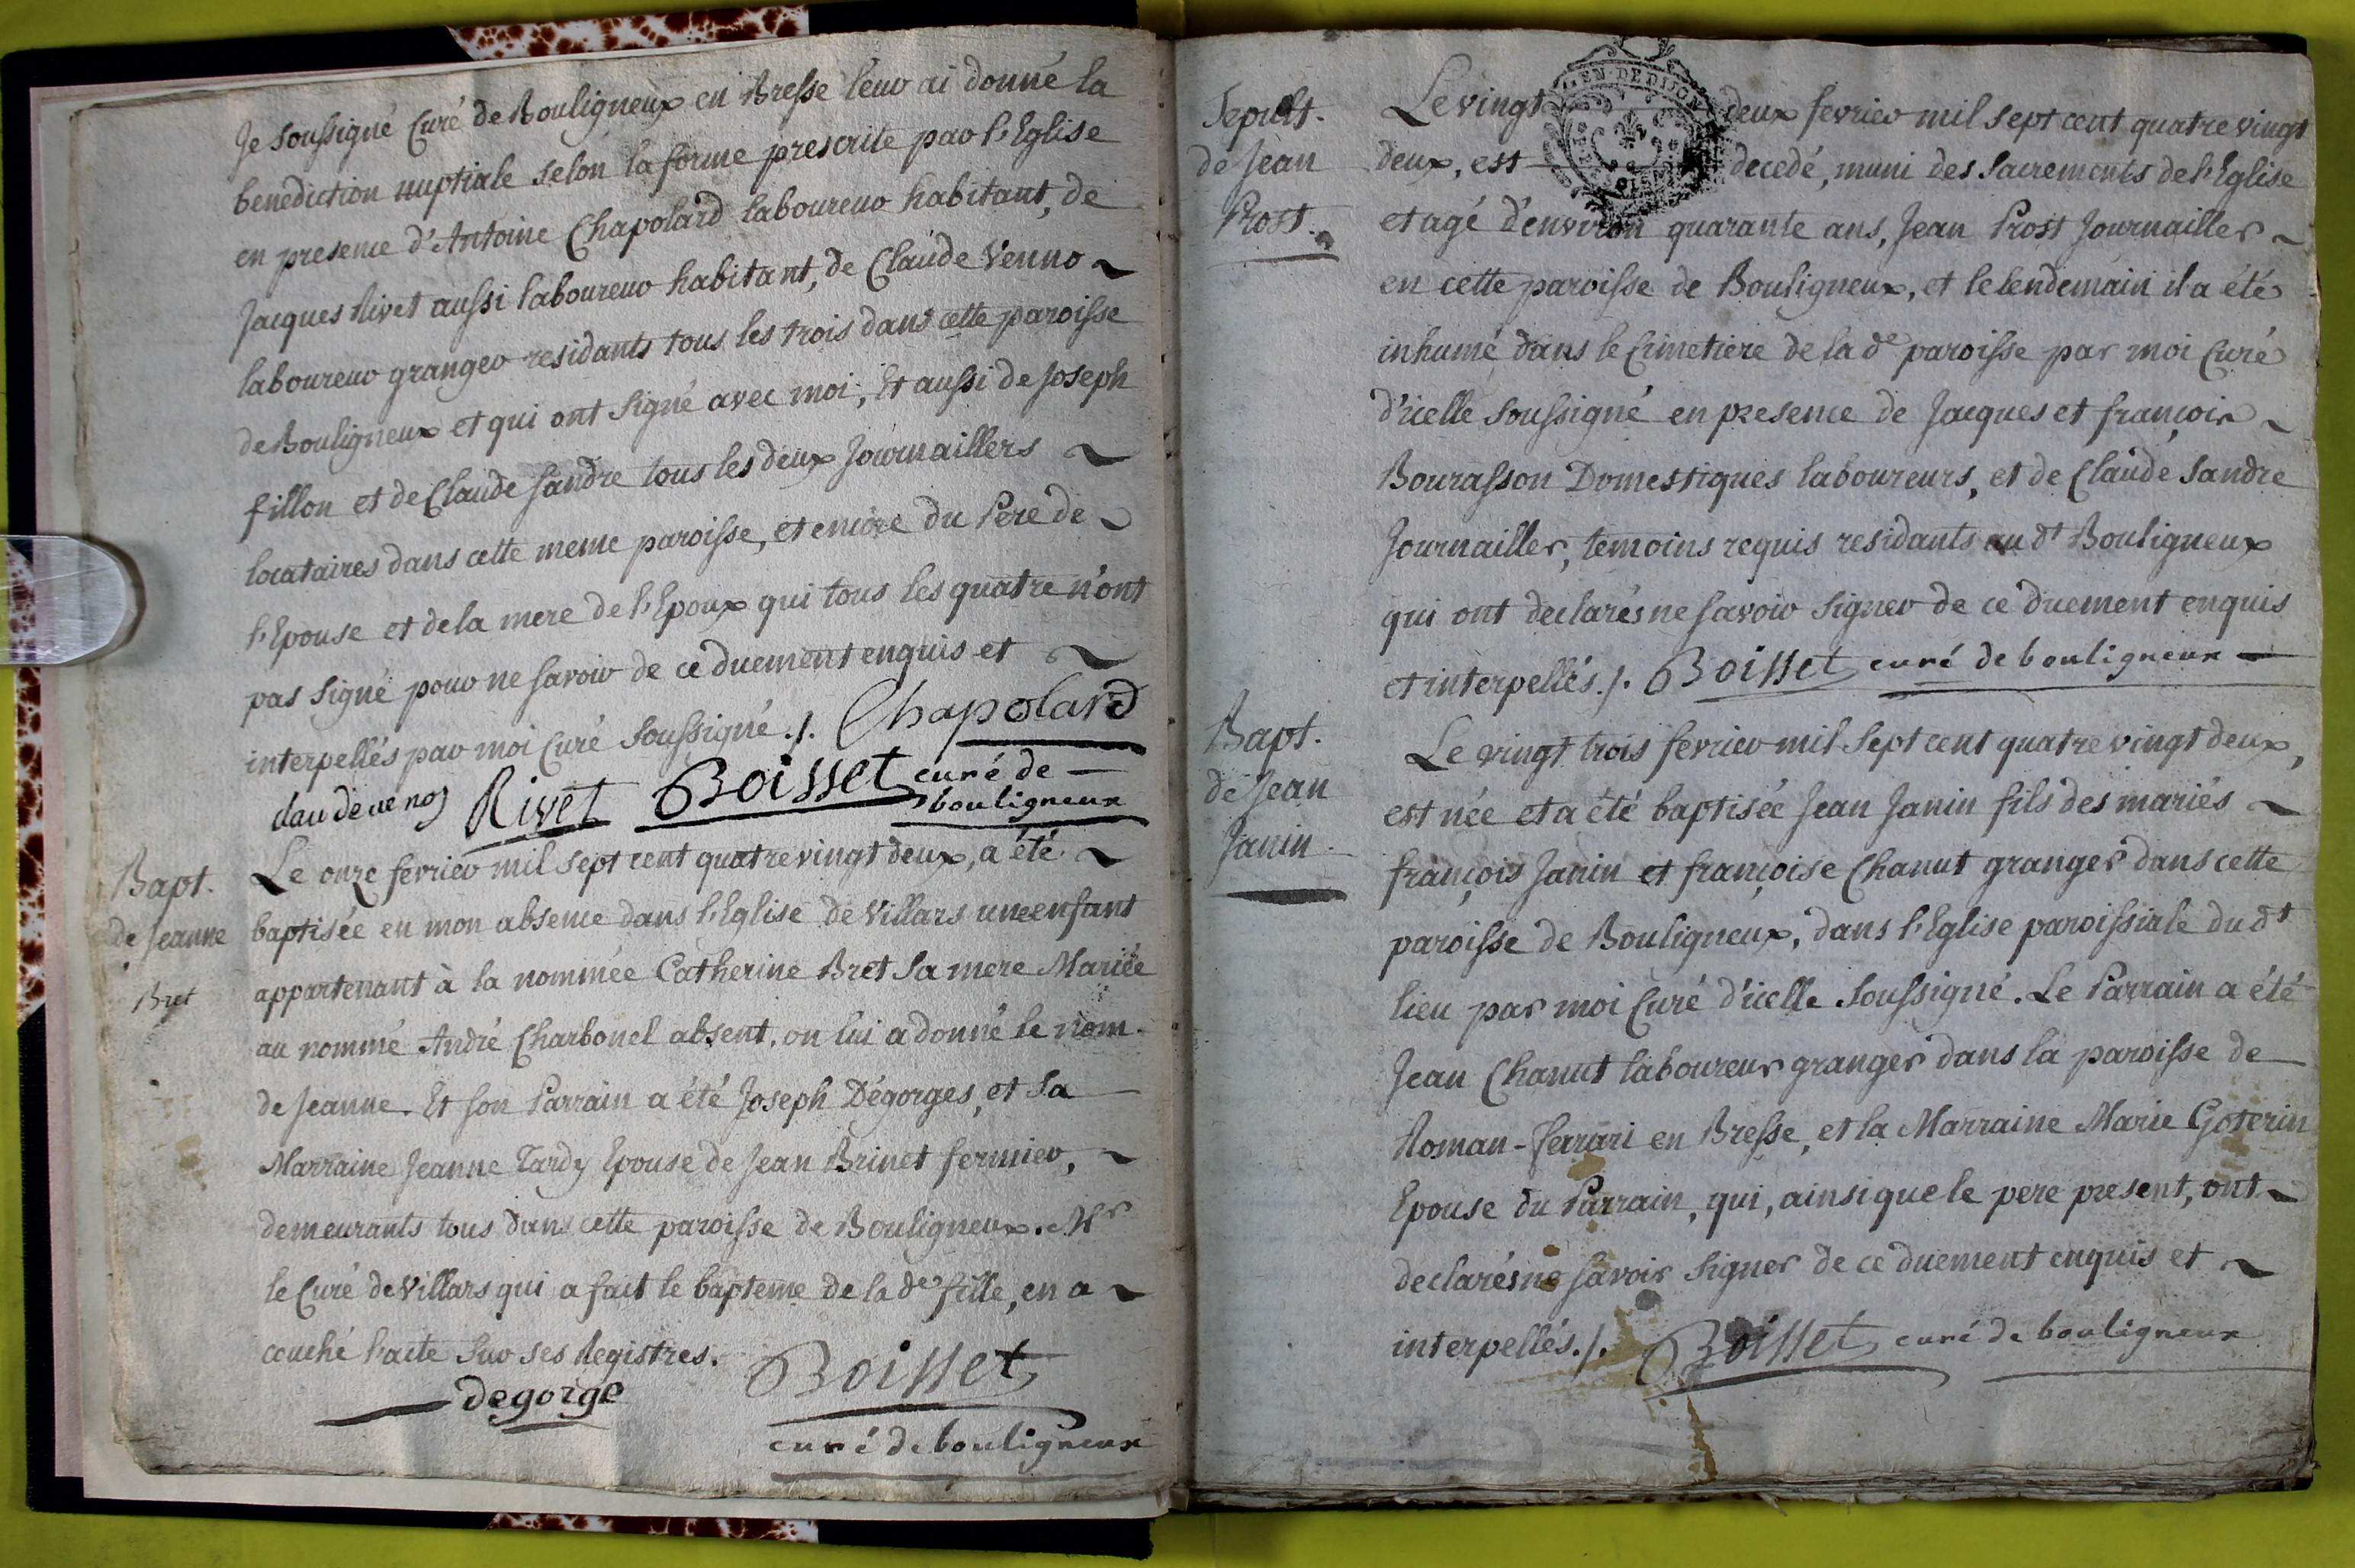 Je soussigné Curé de Bouligneux en Bresse leur ai donné la
benediction nuptiale selon la forme prescrite par l'Eglise
en presence d'Antoine Chapolard laboureur habitant, de
Jacques Rivet aussi laboureur habitant, de Claude Venno
laboureur granger residants tous les trois dans cette paroisse
de Bouligneux et qui ont signé avec moi; Et aussi de Joseph
fillon et de Claude Sandre tous les deux Journaillers
locataires dans cette meme paroisse, et encore du Pere de
l'Epouse et de la mere de l'Epoux qui tous les quatre n'ont
pas signé pour ne savoir de ce duement enquis et
interpellés par moi Curé soussigné ./. Chapolard
claude venos Rivet Boisset curé de
bouligneux
Bapt.
de Jeanne
Bret
Le onze fevrier mil sept cent quatre vingt deux, a été
baptisée en mon absence dans l'Eglise de Villars une enfant
appartenant à la nommée Catherine Bret sa mere Mariée
au nommé André Charbonel absent. on lui a donné le nom
de Jeanne. Et son Parrain a été Joseph Dégorges, et sa
Marraine Jeanne Tardy Epouse de Jean Brinet fermier,
demeurants tous dans cette paroisse de Bouligneux. Mr
le Curé de Villars qui a fait le bapteme de la de fille, en a
couché l'acte sur ses Registres. Boisset
degorge
curé de bouligneux
Sepult.
de Jean
Prost.
GEN. DE DIJON
Le vingt deux fevrier mil sept cent quatre vingt
deux, est decedé, muni des Sacrements de l'Eglise
et agé d'environ quarante ans, Jean Prost Journailler
en cette paroisse de Bouligneux, et le lendemain il a été
inhumé dans le Cimetiere de la de paroisse par moi Curé
d'icelle soussigné en presence de Jacques et françois
Bourasson Domestiques laboureurs, et de Claude Sandre
Journailler, temoins requis residants au dt Bouligneux
qui ont declarés ne savoir signer de ce duement enquis
et interpellés ./. Boisset curé de bouligneux
Bapt.
de Jean
Janin.
Le vingt trois fevrier mil sept cent quatre vingt deux,
est née et a été baptisée Jean Janin fils des mariés
françois Janin et françoise Chanut granger dans cette
paroisse de Bouligneux, dans l'Eglise paroissiale du dt
lieu par moi Curé d'icelle soussigné. Le Parrain a été
Jean Chanut laboureur granger dans la paroisse de
Roman-ferrari en Bresse, et la Marraine Marie Goterin
Epouse du Parrain, qui, ainsi que le pere present, ont
declarés ne savoir signer de ce duement enquis et
interpellés ./. Boisset curé de bouligneux